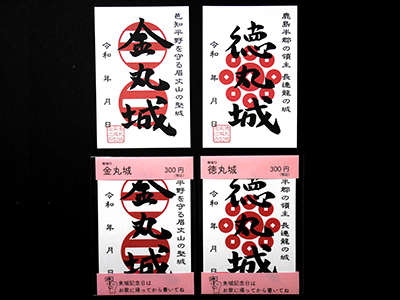 邑知平野を守る眉丈山の堅城
金丸城
令和 年 月 日
鹿島半郡の領主 長連龍の城
徳丸城
令和 年 月 日
御城印
金丸城
300円
(税込)
平野を守る眉丈山の堅城
金丸城
令和 年 月
来城記念日は
お家に帰ってから書いてね
御城印
徳丸城
300円
(税込)
半郡の領主 長連龍の城
徳丸城
令和 年 月
来城記念日は
お家に帰ってから書いてね